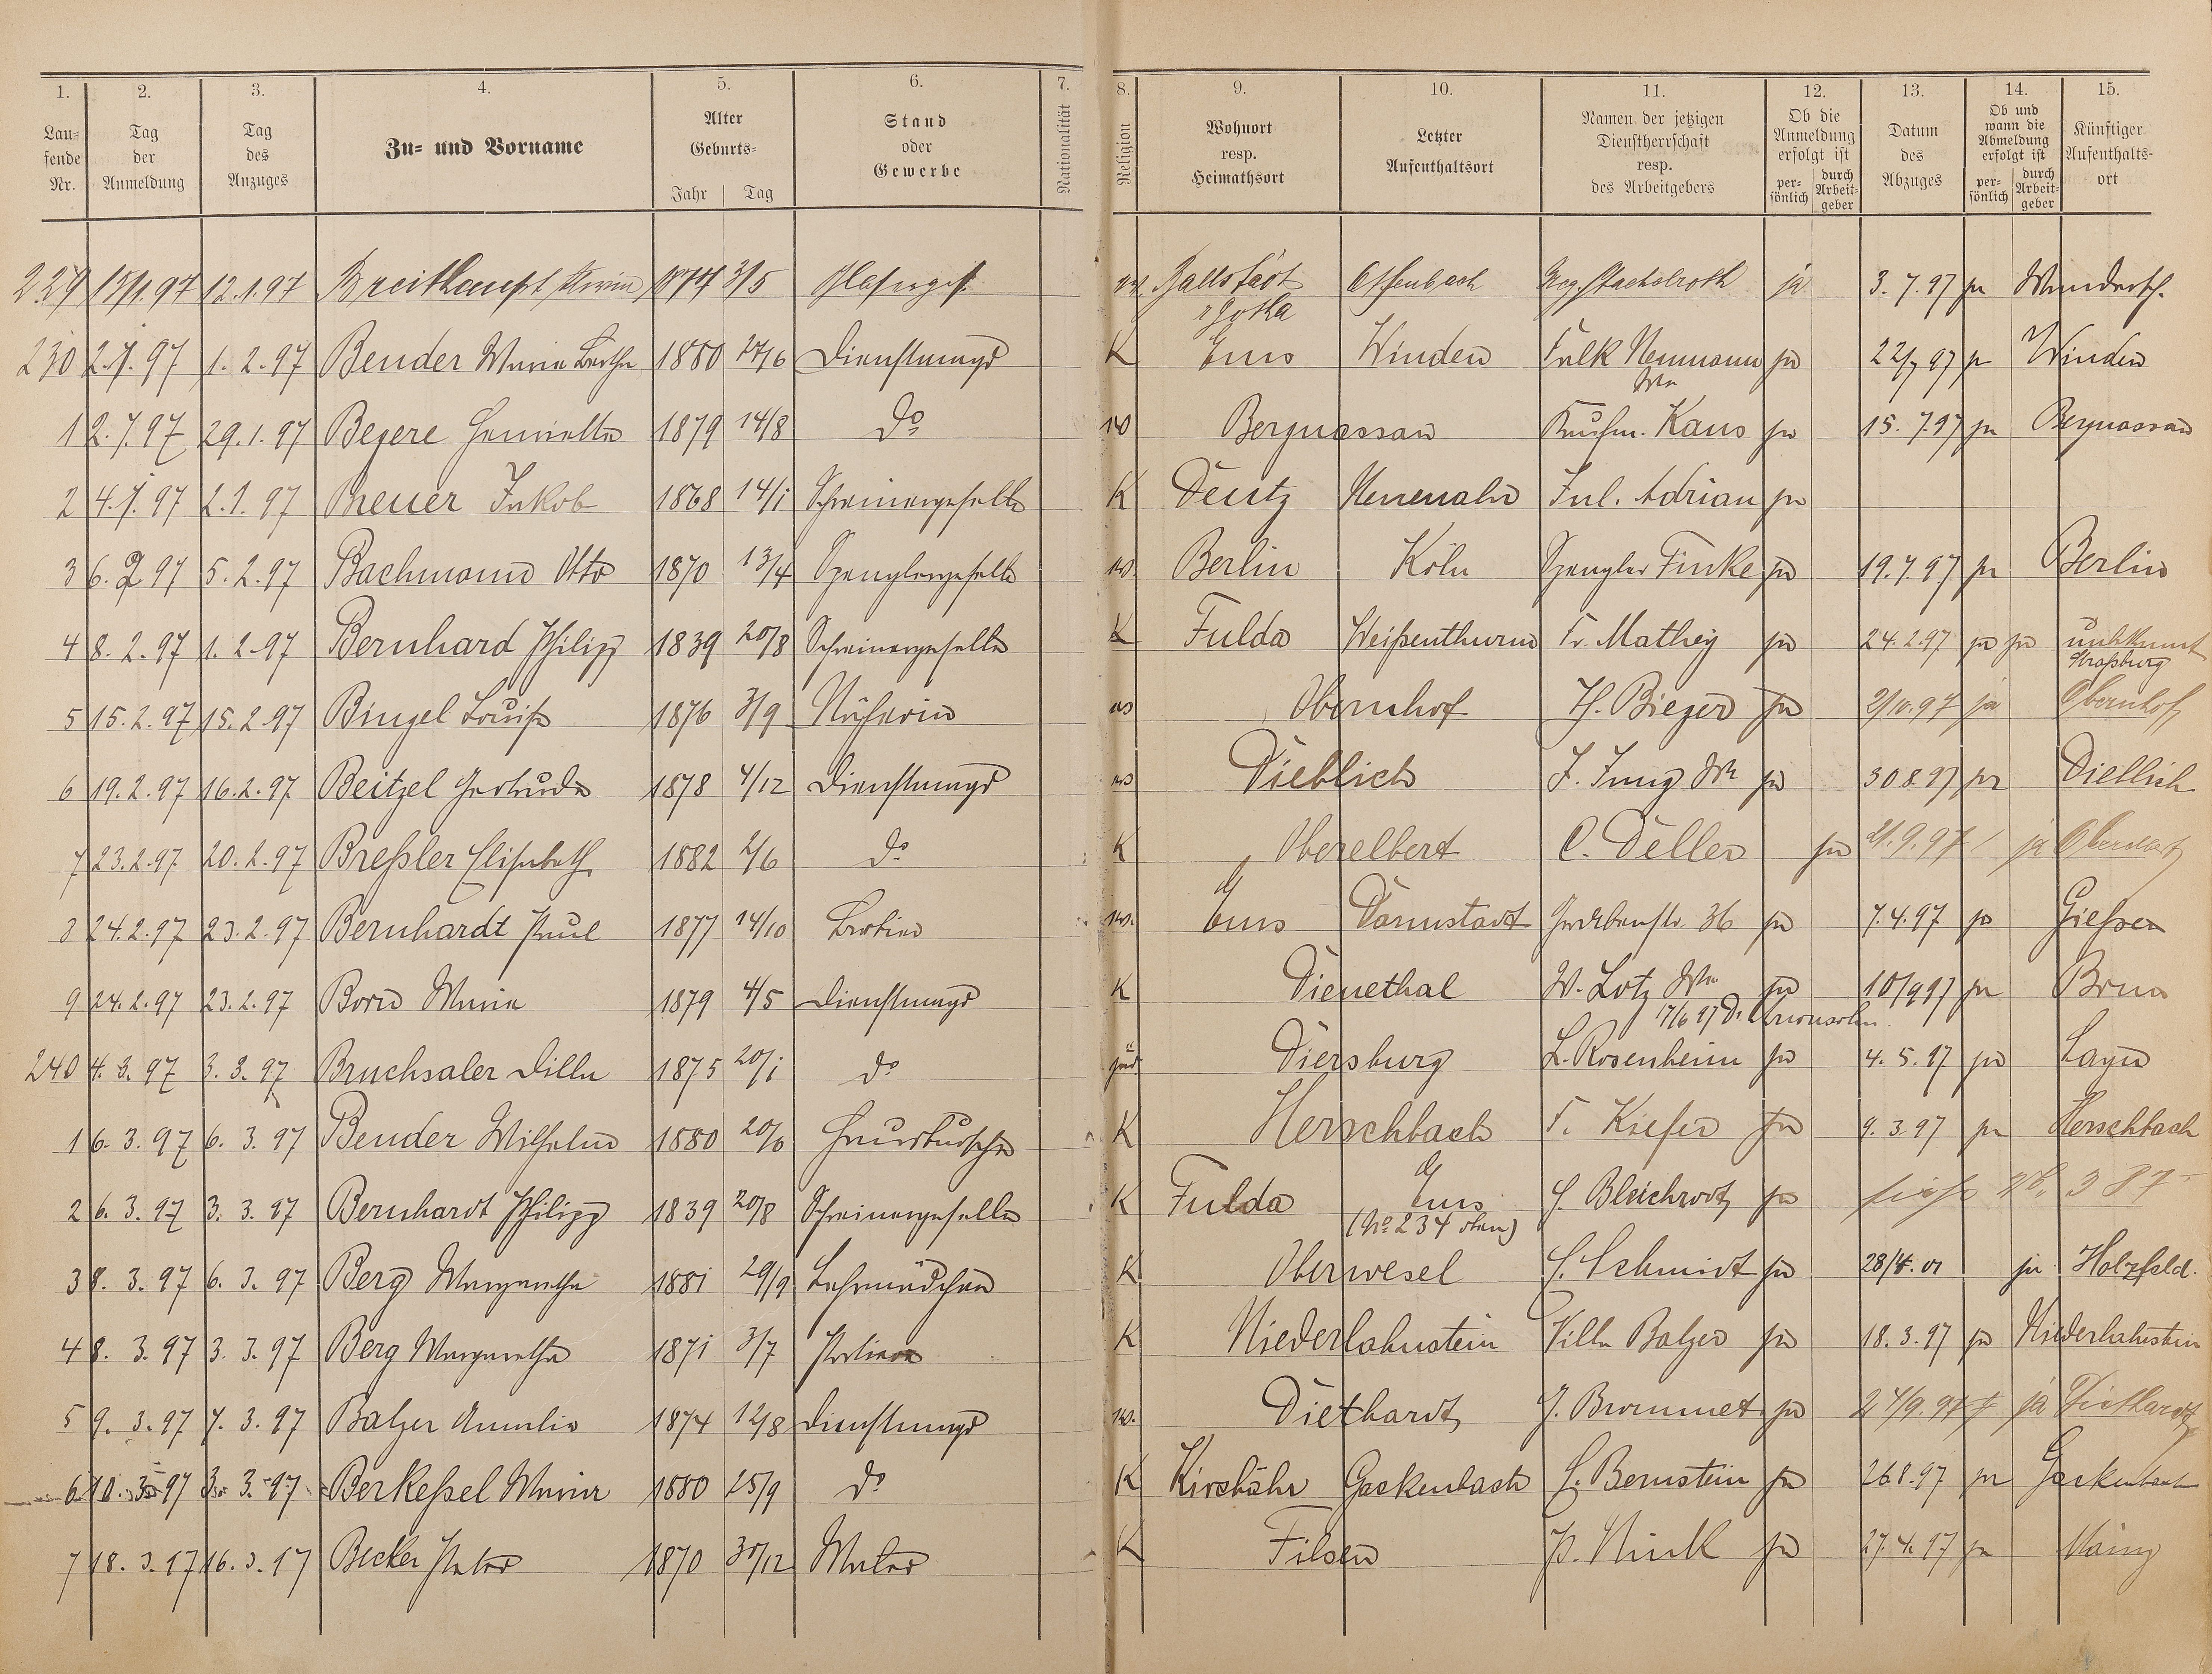 1. 2. 3. 4. 5. 6. 7. 8. 9. 10. 11. 12. 13. 14. 15.
Lau=fende Nr. | Tag der Anmeldung | Tag des Anzuges | Zu= und Vorname | Alter Geburts= Jahr Tag | Stand oder Gewerbe | Nationalität | Religion | Wohnort resp. Heimathsort | Letzter Aufenthaltsort | Namen der jetzigen Dienstherrschaft resp. des Arbeitgebers | Ob die Anmeldung erfolgt ist per=sönlich durch Arbeit=geber | Datum des Abzuges | Ob und wann die Abmeldung erfolgt ist per=sönlich durch Arbeit=geber | Künftiger Aufenthalts=ort
229 12.1.97 Breithaupt 3/5 Ballstädt Offenbach Stachelroth ja 3.7.97 ja
r Gotha
230 1.2.97 Bender Maria Bertha 1880 Dienstmagd K Ems Winden Falk Neumann ja 22/7 97 ja Winden
Wwe
1 29.1.97 Beyere Henriette 1879 14/8 do Bergnassau Kaufm. Kaus ja 15.7.97 ja Bergnassau
2 Breuer Jakob 1868 14/1 Schreinergeselle K Deutz Neuenahr Jul. Adrian ja
3 6.2.97 5.2.97 Bachmann Otto 1870 13/4 Spenglergeselle Berlin Köln Spengler Finke ja 19.7.97 ja Berlin
4 8.2.97 1.2.97 Bernhard Philipp 1839 20/8 Schreinergeselle K Fulda Weißenthurm Fr. Mathey ja 24.2.97 ja ja unbekannt
Straßburg
5 15.2.97 15.2.97 Bingel Louise 1876 3/9 Näherin Obernhof H. Bieger ja 2/10.97 ja Obernhof
6 19.2.97 16.2.97 Beitzel Gertrude 1878 4/12 Dienstmagd Dieblich J. Jung Wwe ja 30 8.97 ja Dieblich
7 23.2.97 20.2.97 Breßler Elisabeth 1882 2/6 do K Oberelbert C. Deller ja 21.9.97 ja Oberelbert
8 24.2.97 23.2.97 Bernhardt Paul 1877 14/10 Ems Darmstadt 36 ja 7.4.97 ja Gießen
9 24.2.97 23.2.97 Born Maria 1879 4/5 Dienstmagd K Dienethal W. Lotz Wwe ja 10/9 97 ja
17/6 97 Dr.
240 4.3.97 3.3.97 Bruchsaler Dilla 1875 20/1 do jüd. Diersburg L. Rosenheim ja 4.5.97 ja
1 6.3.97 6.3.97 Bender Wilhelm 1880 Hausbursche K Herschbach F. Kiefer ja 9.3.97 ja Herschbach
2 6.3.97 3.3.97 Bernhardt Philipp 1839 20/8 Schreinergeselle K Fulda Ems Bleichrodt ja siehe No. 387
(No 234 oben)
3 8.3.97 6.3.97 Berg Margaretha 1881 29/9 Lehrmädchen K Oberwesel Schmidt ja 28/4.01 ja Holzfeld.
4 8.3.97 3.3.97 Berg Margaretha 1871 3/7 K Niederlahnstein Villa Balzer ja 18.3.97 ja Niederlahnstein
5 9.3.97 7.3.97 Balzer Amalie 1874 12/8 Dienstmagd Diethardt J. Brommet ja ja Diethardt
6 10.3.97 3.3.97 Berkeßel Maria 1880 25/9 do K Kirchähr Gackenbach Bernstein ja 26 8.97 ja Gackenbach
7 18.3.97 16.3.97 Becker Peter 1870 30/12 Maler K Filsen P. Nink ja 27.4.97 ja Mainz